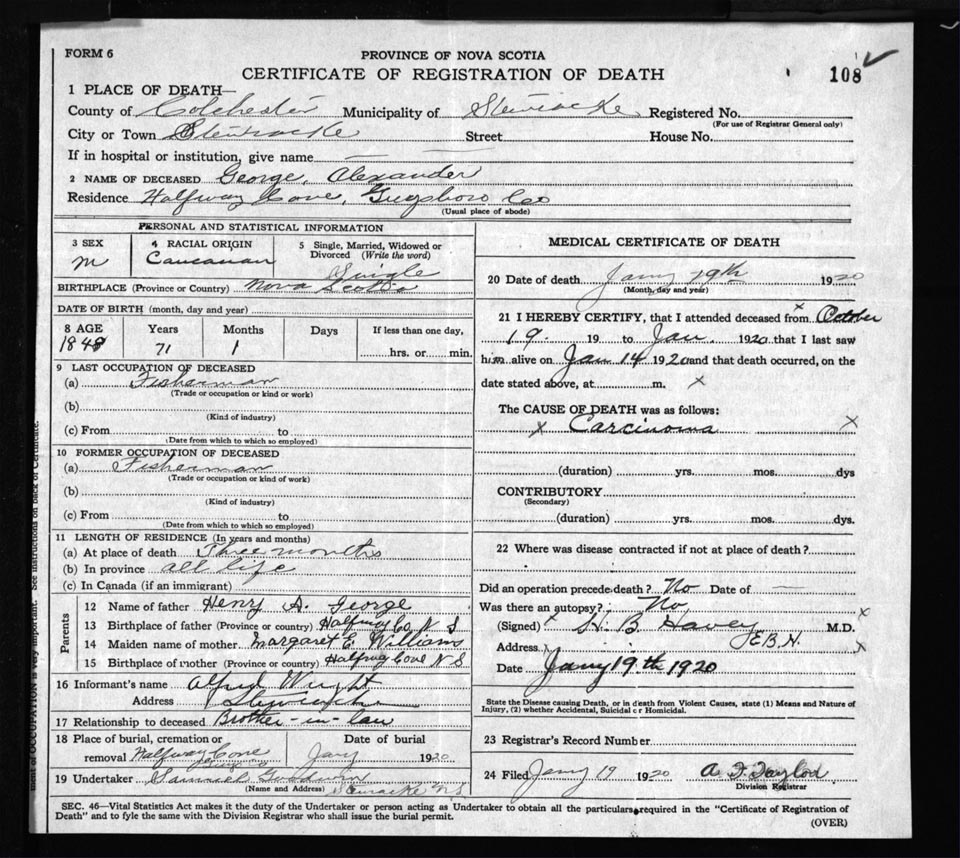 FORM 6
PROVINCE OF NOVA SCOTIA
CERTIFICATE OF REGISTRATION OF DEATH
108
1 PLACE OF DEATH—
County of Colchester Municipality of Stewiacke Registered No.
(For use of Registrar General only)
City or Town Stewiacke Street House No.
If in hospital or institution, give name
2 NAME OF DECEASED George, Alexander
Residence Halfway Cove, Guysboro Co
(Usual place of abode)
PERSONAL AND STATISTICAL INFORMATION
3 SEX 4 RACIAL ORIGIN 5 Single, Married, Widowed or
Divorced (Write the word)
M Caucasian Single
BIRTHPLACE (Province or Country) Nova Scotia
DATE OF BIRTH (month, day and year)
8 AGE Years Months Days If less than one day,
1848 71 1 hrs. or min.
9 LAST OCCUPATION OF DECEASED
(a) Fisherman
(Trade or occupation or kind or work)
(b)
(Kind of industry)
(c) From to
(Date from which to which so employed)
10 FORMER OCCUPATION OF DECEASED
(a) Fisherman
(Trade or occupation or kind of work)
(b)
(Kind of industry)
(c) From to
(Date from which to which so employed)
11 LENGTH OF RESIDENCE (In years and months)
(a) At place of death Three months
(b) In province all life
(c) In Canada (if an immigrant)
Parents
12 Name of father Henry A. George
13 Birthplace of father (Province or country) Halfway Co. N S
14 Maiden name of mother Margaret E. Williams
15 Birthplace of mother (Province or country) Halfway Cove N S
16 Informant's name Alfred Wright
Address Stewiacke
17 Relationship to deceased Brother-in-law
18 Place of burial, cremation or Date of burial
removal Halfway Cove Jany 1920
Guys Co
19 Undertaker Samuel Goodwin
(Name and Address) Stewiacke N.S.
MEDICAL CERTIFICATE OF DEATH
20 Date of death Jany 19th 1920
(Month, day and year)
21 I HEREBY CERTIFY, that I attended deceased from x October
19. 19 to Jan. 1920 that I last saw
him alive on Jan 14 1920 and that death occurred, on the
date stated above, at m. x
The CAUSE OF DEATH was as follows:
x Carcinoma x
(duration) yrs. mos. dys
CONTRIBUTORY
(Secondary)
(duration) yrs. mos. dys.
22 Where was disease contracted if not at place of death?
Did an operation precede death? No Date of —
Was there an autopsy? No
(Signed) x H. B. Havey M.D. x
Address x E.B.H. x
Date Jany 19th 1920
State the Disease causing Death, or in death from Violent Causes, state (1) Means and Nature of
Injury, (2) whether Accidental, Suicidal or Homicidal.
23 Registrar's Record Number
24 Filed Jany 19 1920 A. F. Taylor
Division Registrar
SEC. 46—Vital Statistics Act makes it the duty of the Undertaker or person acting as Undertaker to obtain all the particulars required in the "Certificate of Registration of
Death" and to fyle the same with the Division Registrar who shall issue the burial permit.
(OVER)